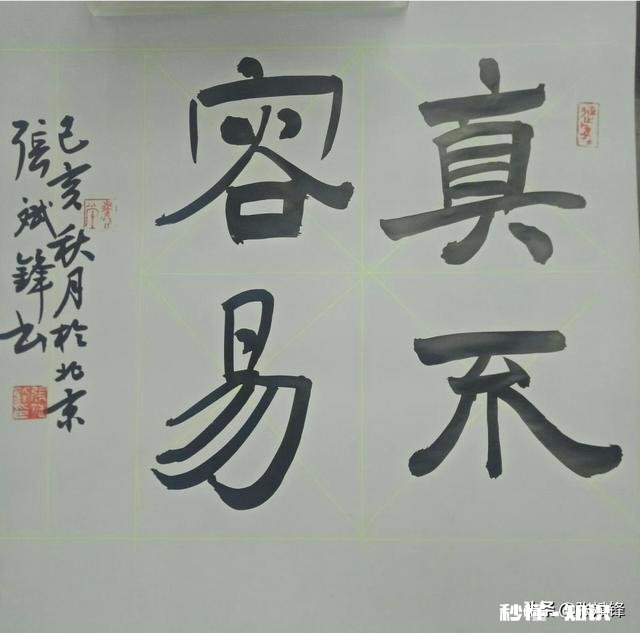 真不
容易
己亥秋月於北京
張斌鋒书
秒懂-知识